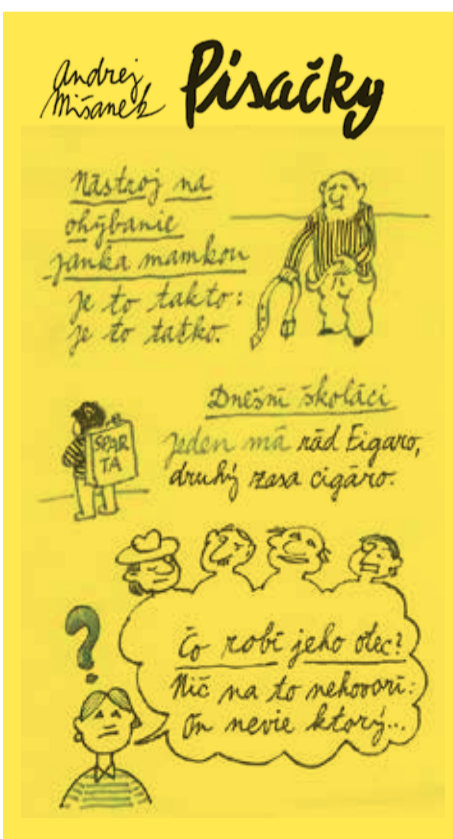 Andrej
Mišanek
Písačky
Nástroj na
ohýbanie
janka mamkou
je to takto:
je to tatko.
Dnešní školáci
SPAR
TA
jeden má rád Figaro,
druhý zasa cigáro.
?
Čo robí jeho otec?
Nič na to nehovorí:
On nevie ktorý...